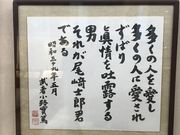 多くの人を愛し
多くの人に愛され
ずばり
と真情を吐露する
男
それが尾崎士郎君
である
昭和三十九年五月
武者小路実篤